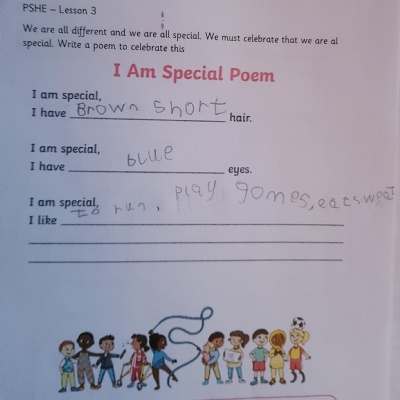 PSHE – Lesson 3
We are all different and we are all special. We must celebrate that we are al
special. Write a poem to celebrate this
I Am Special Poem
I am special,
I have Brown short hair.
I am special,
I have blue eyes.
I am special, play games, eat sweat
I like to run,